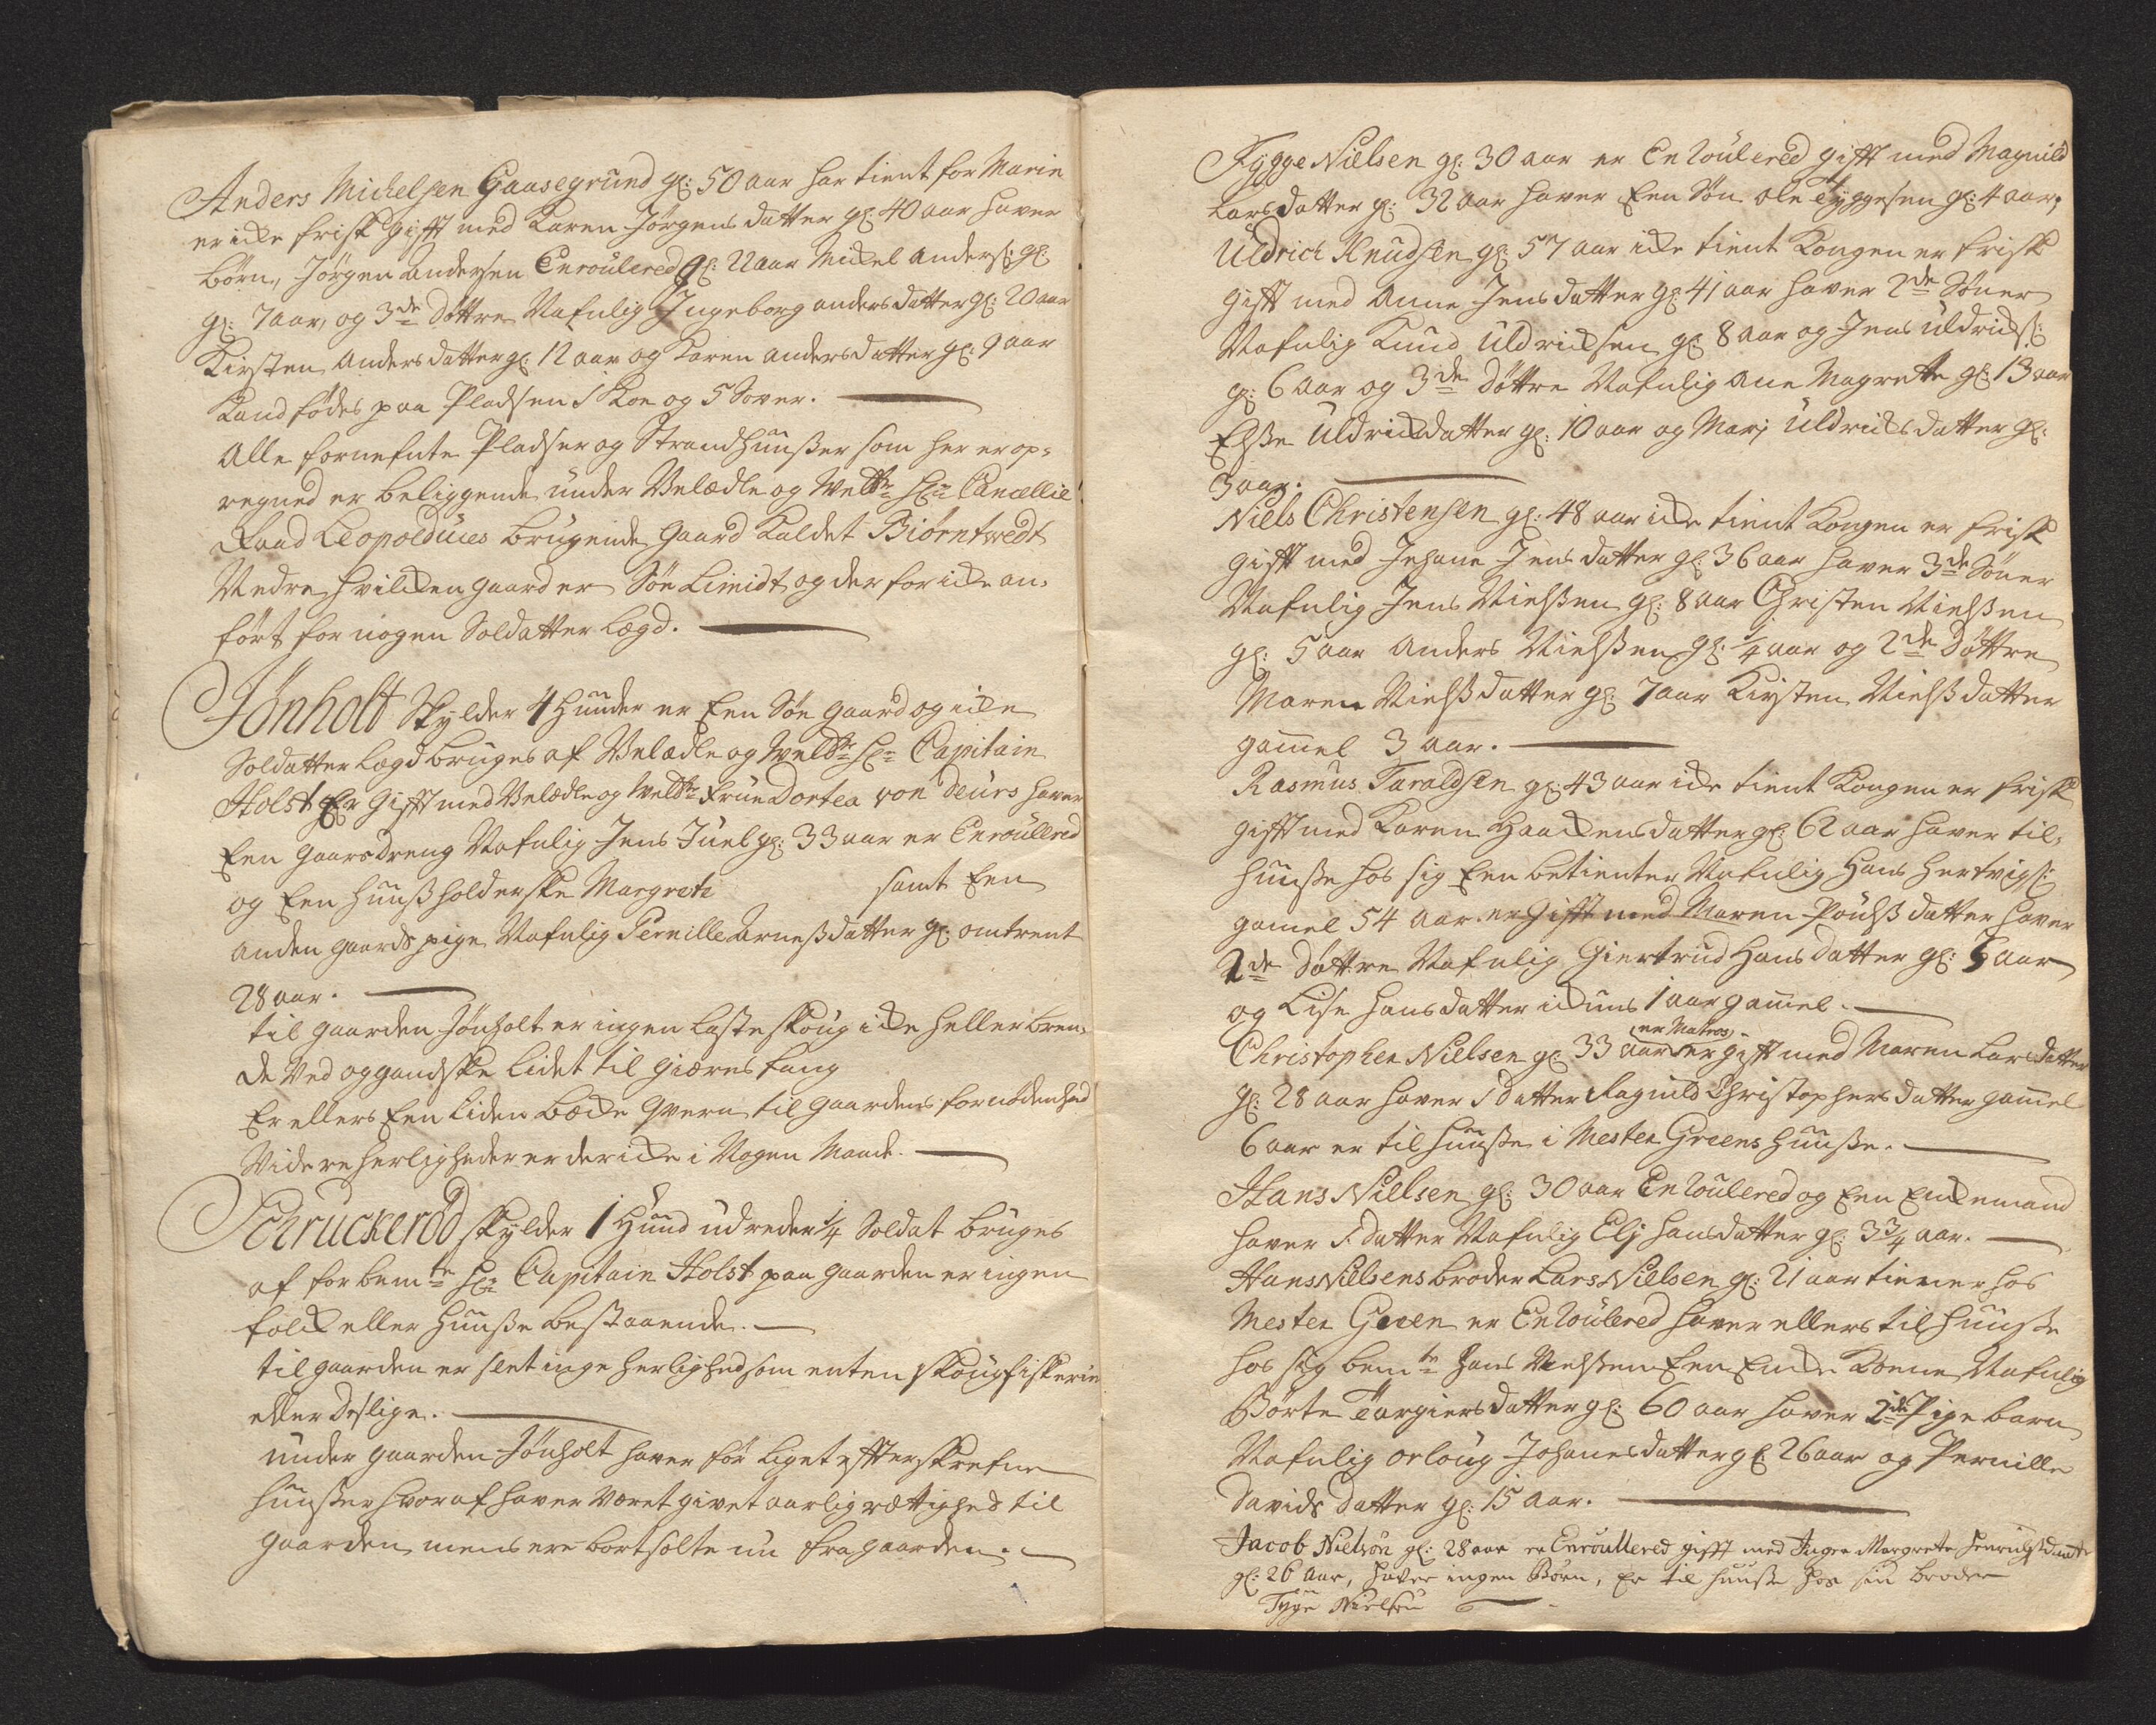 Anders Michelsen Gaasegrund gl: 50 aar har tient for Marin
er icke frisk gifft med Karen Jörgens datter gl: 40 aar haver
börn, Jörgen Andersen Enroulered gl: 22 aar Mickel Anders: gl:
gl: 7 aar, og 3de döttre Nafnlig Ingeborg anders datter gl: 20 aar
Kirsten anders datter gl: 12 aar og Karen anders datter gl: 9 aar
Kand födes paa Pladsen 1 Koe og 5 Sover.
Alle fornefnte Pladser og Strandhuusser som her er op-
regned er beliggende under Velædle og Welb:r Hr: Cancellie
Raad Leopoldues brugende Gaard Kaldet Biörntvedt
Nedre, hvilcken gaard er Söe Limidt og der for icke an-
fört for nogen Soldatter Legd.
Jönholt Skylder 4 Hunder er Een Söe gaard og icke
Soldatter Legd bruges af Velædle og Welb:r Hr: Capitain
Holst Er Gifft med Velædle og Welb:r Frue Dortea von Deurs haver
Een gaardsdreng Nafnlig Jens Juel gl: 33 aar er Enroullered
og Een huussholderske Margrete samt Een
anden gaards pige Nafnlig Pernille Arnessdatter gl: omtrent
28 aar.
til gaarden Jönholt er ingen Lasteskoug icke heller bren-
de Ved og gandske Lidet til gierdes fang
Er ellers Een Liden becke Qvern til gaardens fornödenhed
Widere herligheder er der icke i Nogen Maade.
Schruckeröd skylder 1 Hund udreder 1/4 Soldat bruges
af forbem:te Hr: Capitain Holst paa gaarden er ingen
folck eller Huusse bestaaende.
til gaarden er slet inge herlighed som enten skoug fiskerie
eller desslige.
under gaarden Jönholt haver för Ligget effterskrefne
huusser hvoraf haver Været givet aarlig rettighed til
gaarden, mens ere bortsolte nu fra gaarden.
Tygge Nielsen gl: 30 aar er Enroulered gifft med Magnild
Lars datter gl: 32 aar haver Een Sön Ole Tyggesen gl: 4 aar,
Uldrich Knudsen gl: 57 aar icke tient Kongen er frisk
gifft med Anne Jens datter gl: 41 aar haver 2de Sönner
Nafnlig Knud Uldricksen gl: 8 aar og Jens Uldricks:
gl: 6 aar og 3de döttre Nafnlig Ane Magrette gl: 13 aar
Elsse Uldrickdatter gl: 10 aar og Mari Uldricksdatter gl:
3 aar.
Niels Christensen gl: 48 aar icke tient Kongen er frisk
gifft med Johane Jens datter gl: 36 aar haver 3de Söner
Nafnlig Jens Nielssen gl: 8 aar Christen Nielssen
gl: 5 aar Anders Nielssen gl: 1/4 aar og 2de Döttre
Maren Nielss datter gl: 7 aar Kirsten Nielss datter
gammel 3 aar.
Rasmus Taraldsen gl: 43 aar icke tient Kongen er frisk
gifft med Karen Haackensdatter gl: 62 aar haver til-
huusse hos sig Een betienter Nafnlig Hans Hertvigs:
gamel 54 aar er gifft med Maren Poulss datter haver
2de döttre Nafnlig Giertrud Hansdatter gl: 5 aar
og Lise Hans datter ickuns 1 aar gammel.
(er Matros)
Christopher Nielsen gl: 33 aar er gifft med Maren Lars datter
gl: 28 aar haver 1 datter Ragnild Christophersdatter gammel
6 aar er til huusse i Mester Greens huusse.
Hans Nielsen gl: 30 aar Enroulered og Een Enckemand
haver 1 datter Nafnlig Eli Hansdatter gl: 3 3/4 aar.
Hans Nielsens broder Lars Nielsen gl: 21 aar tiener hos
Mester Green er Enroulered haver ellers til huusse
hos sig bem:te Hans Nielssen Een Encke Konne Nafnlig
Börte Torgiers datter gl: 60 aar haver 2de Pige barn
Nafnlig Orloug Johanesdatter gl: 26 aar og Pernille
Davids datter gl: 15 aar.
Jacob Nielsön gl: 28 aar er Enroullered gifft med Inger Margrete Henrichsdaatter
gl: 26 aar, haver ingen Börn, er til huusse hos sin broder
Tyge Nielsen